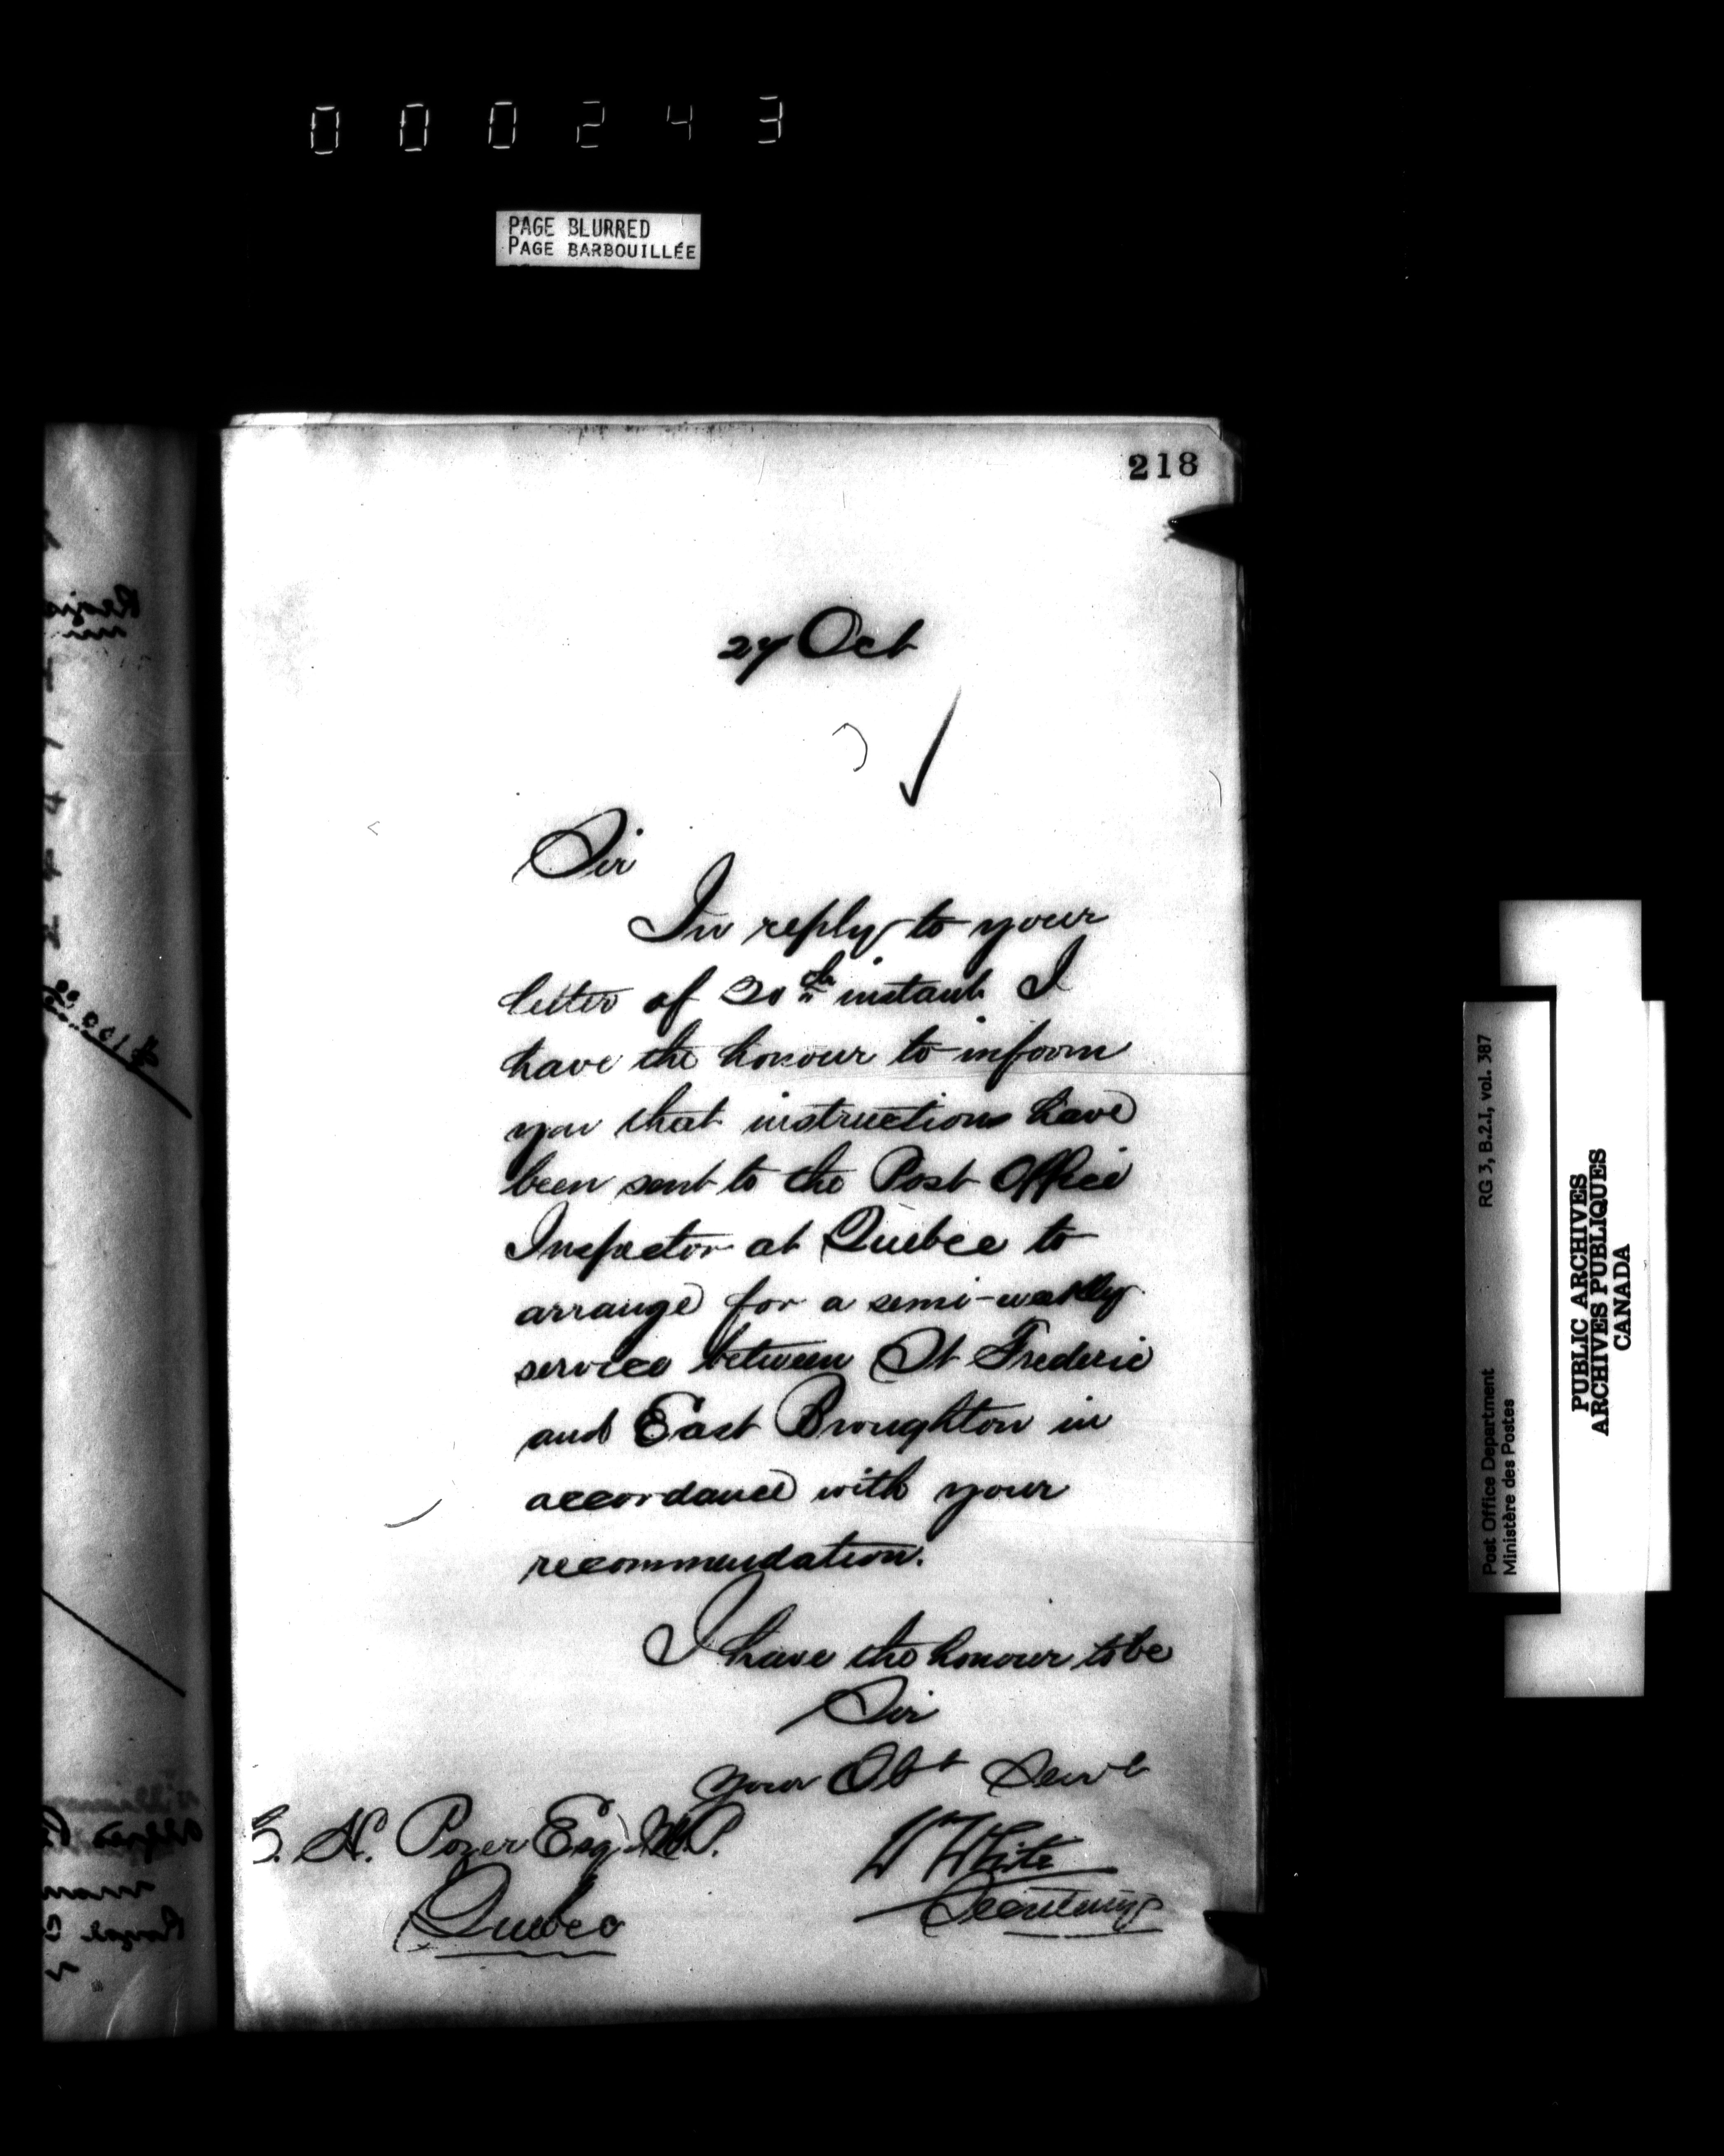 000243
PAGE BLURRED
PAGE BARBOUILLÉE
218
27 Oct
Sir
In reply to your
letter of 20th instant I
have the honour to inform
you that instructions have
been sent to the Post Office
Inspector at Quebec to
arrange for a semi-weekly
service between St Frederic
and East Broughton in
accordance with your
recommendation.
I have the honour to be
Sir
your Obt Servt
H. Pozer Esq. M.P.
Quebec
W White
Secretary
RG 3, B.2.1, vol. 387
Post Office Department
Ministère des Postes
PUBLIC ARCHIVES
ARCHIVES PUBLIQUES
CANADA